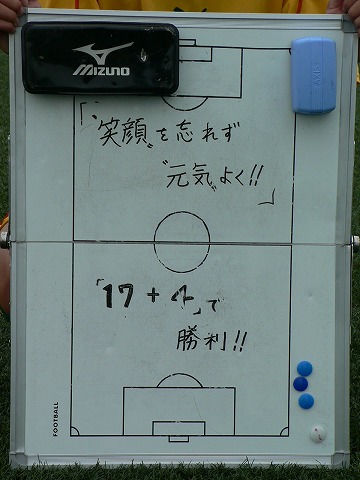 MIZUNO
AXIS
「"笑顔"を忘れず
"元気"よく!!」
「17+4」で
勝利!!
FOOTBALL